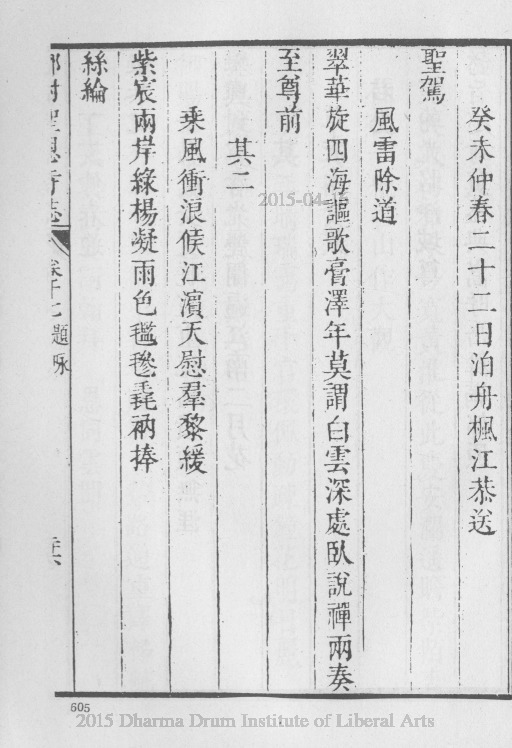 癸未仲春二十一日泊舟楓江恭送
聖駕
風雷除道
翠華旋四海謳歌膏澤年莫謂白雲深處臥說禪兩奏
至尊前
其二
乘風衝浪候江濱天慰羣黎緩
紫宸兩岸綠楊凝雨色毿毿毳衲捧
絲綸
聖恩寺志
卷十七 題咏
605
2015-04-
2015 Dharma Drum Institute of Liberal Arts